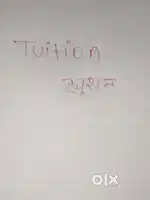 Tuition
ट्यूशन
OLX